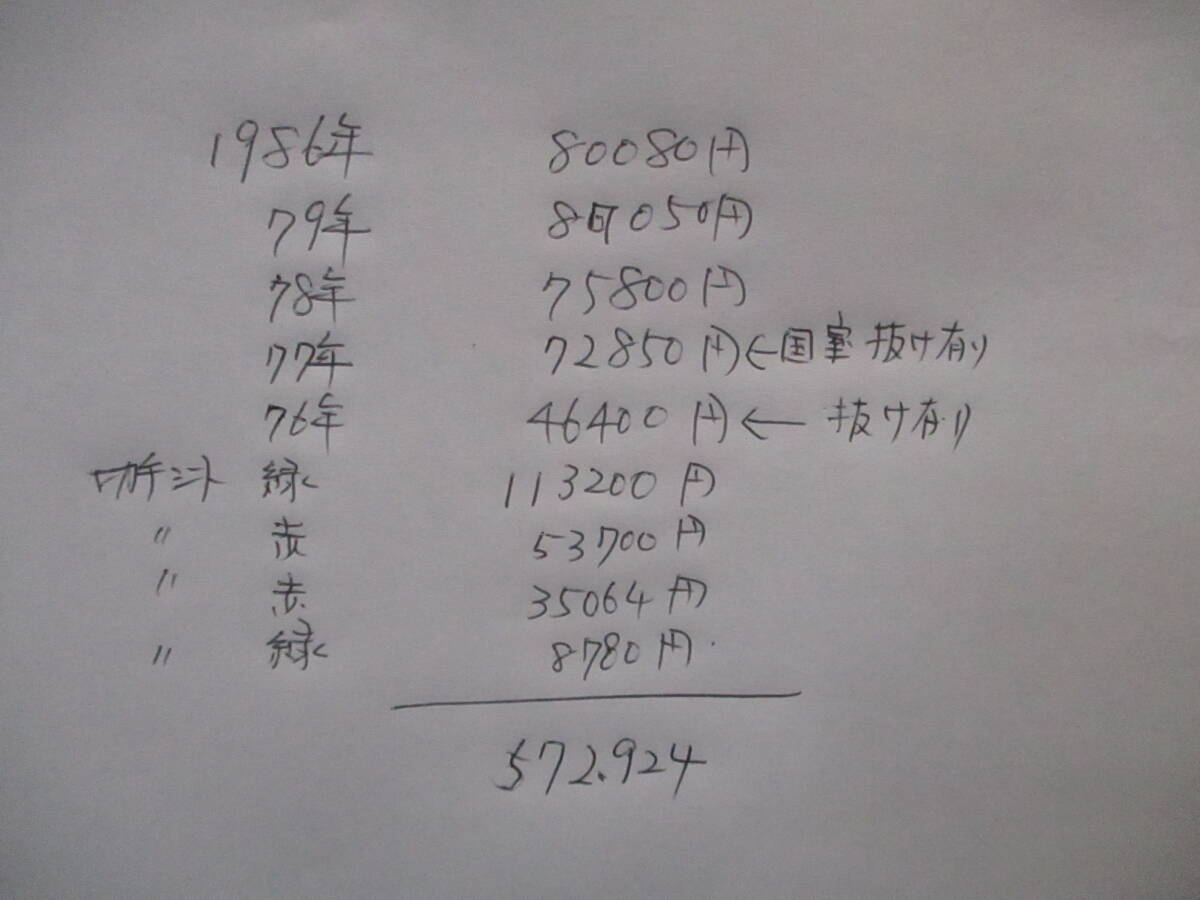 1986年 80080円
79年 87050円
78年 75800円
77年 72850円 ← 抜け有り
76年 46400円 ← 抜け有り
シート 緑 113200円
〃 赤 53700円
〃 赤 35064円
〃 緑 8780円
572.924